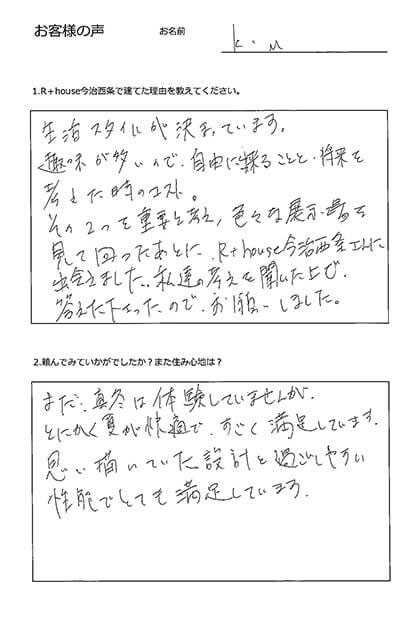 お客様の声
お名前
K・M
1.R+house今治西条で建てた理由を教えてください。
生活スタイルが決まっています。
趣味が多いので、自由に操ることと、将来を
考えた時のコスト。
その2つを重要と考え、色々な展示場を
見て回ったあとに、R+house今治西条さんに
出会えました。私達の考えを聞いた上で、
答えて下さったので、お願いしました。
2.頼んでみていかがでしたか？また住み心地は？
まだ、真冬は体験していませんが、
とにかく夏が快適で、すごく満足しています。
思い描いていた設計と過ごしやすい
性能でとても満足しています。